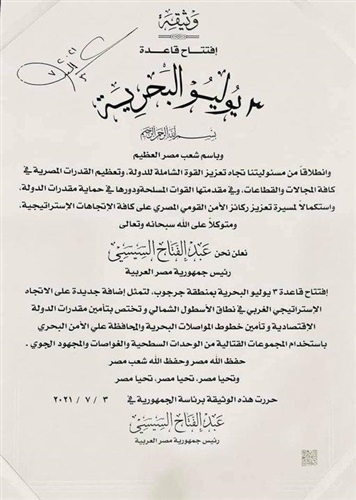 وثيقة
إفتتاح قاعدة
٣ يوليو البحرية
بسم الله الرحمن الرحيم
وباسم شعب مصر العظيم
وانطلاقا من مسئوليتنا تجاه تعزيز القوة الشاملة للدولة، وتعظيم القدرات المصرية في
كافة المجالات والقطاعات، وفي مقدمتها القوات المسلحة ودورها في حماية مقدرات الدولة،
واستكمالاً لمسيرة تعزيز ركائز الأمن القومي المصري على كافة الإتجاهات الإستراتيجية،
ومتوكلاً على الله سبحانه وتعالى
نعلن نحن عبد الفتاح السيسي
رئيس جمهورية مصر العربية
إفتتاح قاعدة ٣ يوليو البحرية بمنطقة جرجوب، لتمثل إضافة جديدة على الاتجاه
الإستراتيجي الغربي في نطاق الأسطول الشمالي و تختص بتأمين مقدرات الدولة
الاقتصادية و تأمين خطوط المواصلات البحرية والمحافظة علي الأمن البحري
باستخدام المجموعات القتالية من الوحدات السطحية والغواصات والمجهود الجوي .
حفظ الله مصر وحفظ الله شعب مصر
وتحيا مصر، تحيا مصر، تحيا مصر
حررت هذه الوثيقة برئاسة الجمهورية في ٣ / ٧ / ٢٠٢١
عبد الفتاح السيسي
رئيس جمهورية مصر العربية